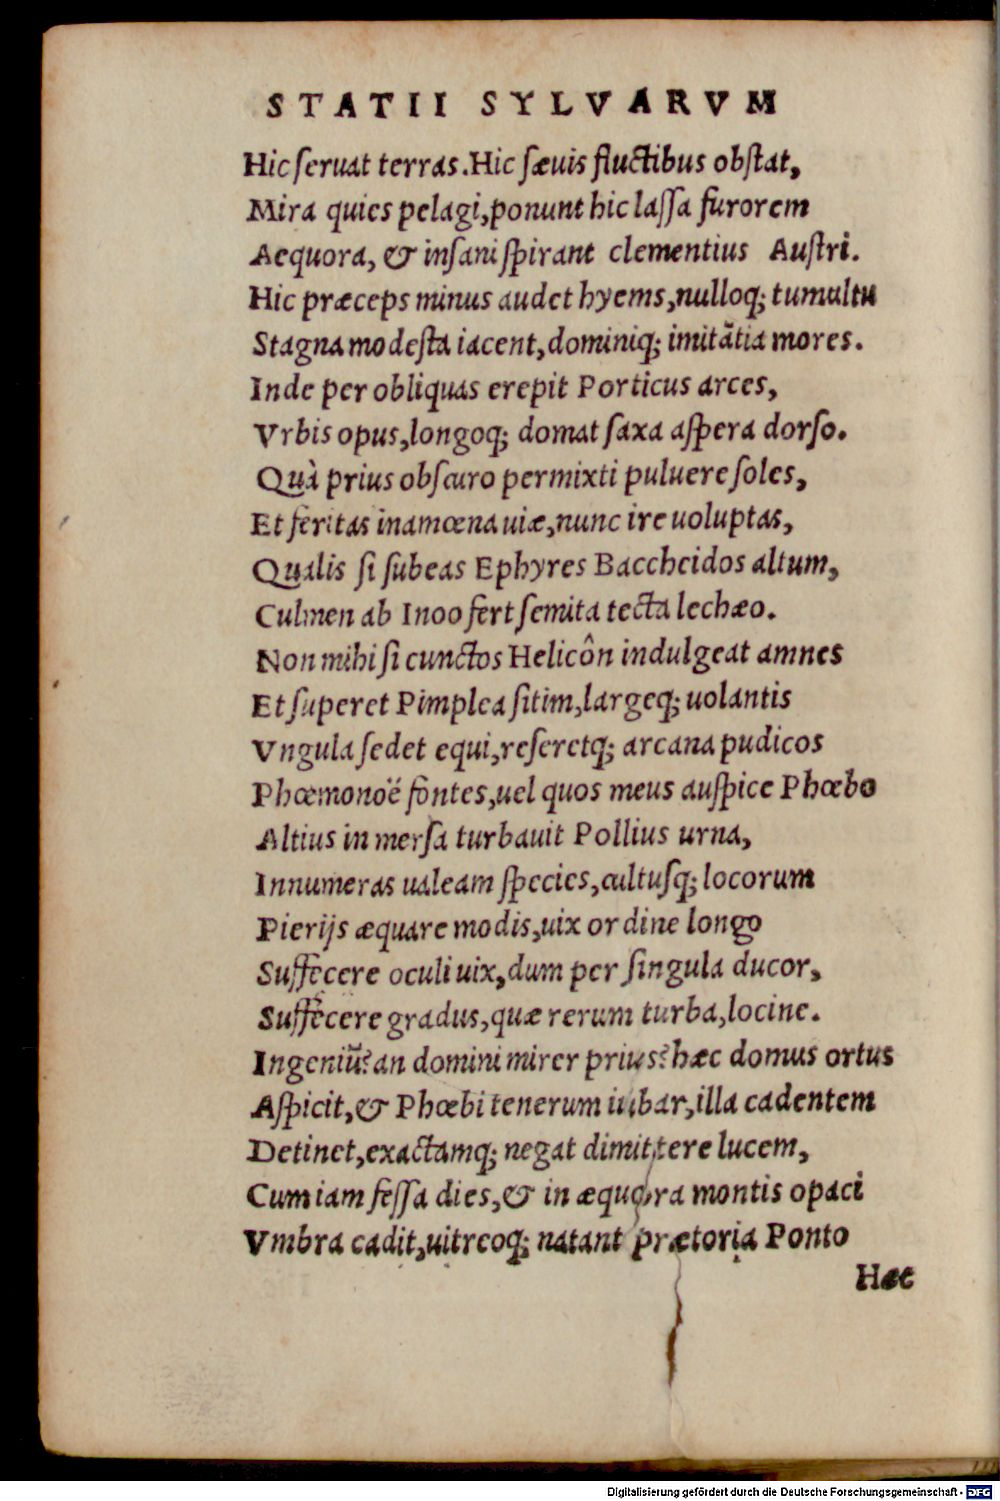 STATII SYLVARVM
Hic seruat terras. Hic sæuis fluctibus obstat,
Mira quies pelagi, ponunt hic lassa furorem
Aequora, & insani spirant clementius Austri.
Hic præceps minus audet hyems, nulloq; tumultu
Stagna modesta iacent, dominiq; imitātia mores.
Inde per obliquas erepit Porticus arces,
Vrbis opus, longoq; domat saxa aspera dorso.
Quà prius obscuro permixti puluere soles,
Et feritas inamœna uiæ, nunc ire uoluptas,
Qualis si subeas Ephyres Baccheidos altum,
Culmen ab Inoo fert semita tecta lechæo.
Non mihi si cunctos Helicôn indulgeat amnes
Et superet Pimplea sitim, largeq; uolantis
Vngula sedet equi, reseretq; arcana pudicos
Phœmonoë fontes, uel quos meus auspice Phœbo
Altius in mersa turbauit Pollius urna,
Innumeras ualeam species, cultusq; locorum
Pierijs æquare modis, uix ordine longo
Suffecere oculi uix, dum per singula ducor,
Suffecere gradus, quæ rerum turba, locine.
Ingeniū? an domini mirer prius? hæc domus ortus
Aspicit, & Phœbi tenerum iubar, illa cadentem
Detinet, exactamq; negat dimittere lucem,
Cum iam fessa dies, & in æquora montis opaci
Vmbra cadit, uitreoq; natant prætoria Ponto
Hæc
Digitalisierung gefördert durch die Deutsche Forschungsgemeinschaft - DFG